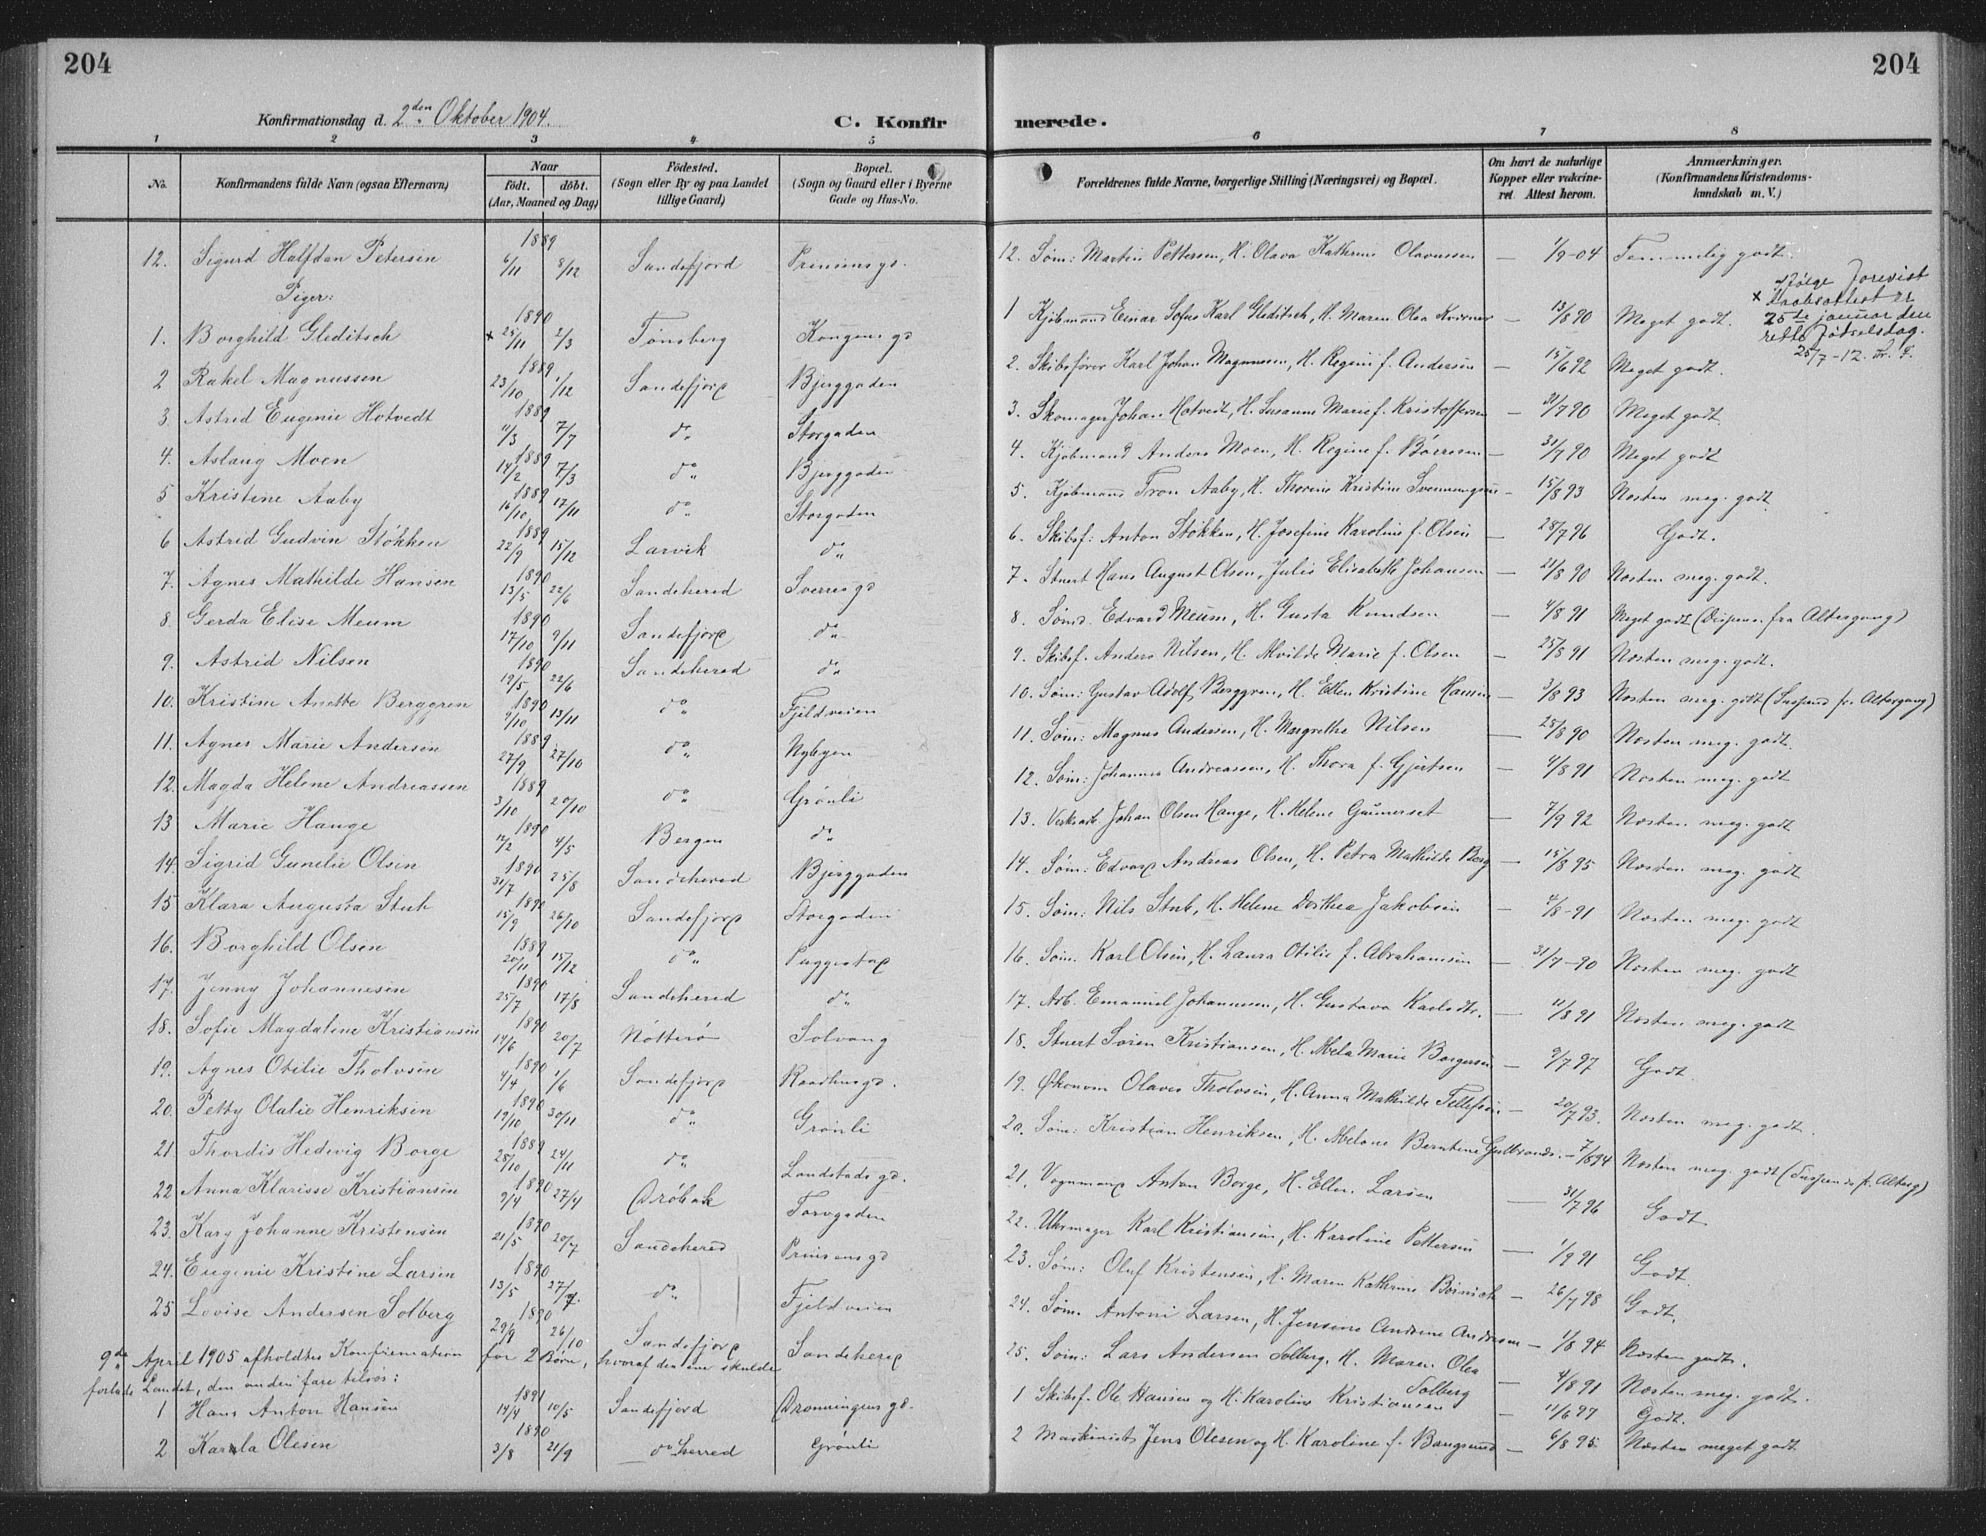 204
204
Konfirmationsdag d. 2den Oktober 1904.
C. Konfir
merede.
1 2 3 4 5 6 7 8
No.
Konfirmandens fulde Navn (ogsaa Efternavn)
Naar
födt. döbt.
(Aar, Maaned og Dag)
Födested.
(Sogn eller By og paa Landet
tillige Gaard)
Bopæl.
(Sogn og Gaard eller i Byerne
Gade og Hus-No.
Forældrenes fulde Navne, borgerlige Stilling (Næringsvei) og Bopæl.
Om havt de naturlige
Kopper eller vakcine-
ret. Attest herom.
Anmærkninger.
(Konfirmandens Kristendoms-
kundskab m. V.)
12. Sigurd Halfdan Petersen 1889 6/11 8/12 Sandefjord Prinsensgd. 12. Søm: Martin Pettersen, H. Olava Kathrine Olavussen — 1/9-04 Temmelig godt.
Piger:
1. Borghild Gleditsch 1890 x 25/11 2/3 Tønsberg Kongensgd 1 Kjøbmand Einar Sofus Karl Gleditsch, H. Maren Olea 13/8 90 Meget godt.
x Ifølge forevist
Daabsattest er
25de januar den
rette Fødselsdag.
25/7-12.
2 Rakel Magnussen 1889 23/10 1/12 Sandefjord Bjerggaden 2. Skibsfører Karl Johan Magnussen, H. Regine f. Andersen — 15/6 92 Meget godt.
3. Astrid Eugenie Hotvedt 1889 11/3 7/7 do Storgaden 3. Skomager Johan Hotvedt, H. Susanne Marie f. Kristoffersen — 31/7 90 Meget godt
4. Aslaug Moen 1889 14/2 7/3 do Bjerggaden 4. Kjøbmand Anders Moen, H. Regine f. Börresen — 31/7 90 Meget godt
5 Kristine Aaby 1889 16/10 17/11 do Storgaden 5. Kjøbmand Tron Aaby, H. Thorine Kristine Svenningsen — 15/8 93 Næsten meg. godt.
6 Astrid Gudvin Stökken 1889 22/9 15/12 Larvik do 6. Skibsf: Anton Stökken, H. Josefine Karoline f. Olsen — 28/7 96 Godt.
7. Agnes Mathilde Hansen 1890 13/5 22/6 Sandeherred Sverresgd 7. Stuert Hans August Olsen, Julie Elisabeth Johansen — 21/8 90 Næsten meg. godt.
8. Gerda Elise Meum 1890 17/10 9/11 Sandefjord do 8. Sömd. Edvard Meum, H. Gusta Knudsen — 4/8 91 Meget godt (Dispens. fra Altergang)
9. Astrid Nilsen 1890 19/5 22/6 Sandeherred do 9. Skibsf. Anders Nilsen, H. Alvilde Marie f. Olsen — 25/8 91 Næsten meg. godt.
10. Kristine Anette Berggren 1890 9/10 13/11 do Fjeldveien 10. Søm: Gustav Adolf Berggren, H. Ellen Kristine Hansen — 3/8 93 Næsten meg. godt (Suspend fr. Altergang)
11. Agnes Marie Andersen 1889 27/9 27/10 do Nybyen 11. Søm: Magnus Andersen, H. Margrethe Nilsen — 25/8 90 Næsten meg. godt.
12. Magda Helene Andreassen 1889 3/10 20/10 do Grönli 12. Søm: Johannes Andreassen, H. Thora f. Gjertsen — 4/8 91 Næsten meg. godt
13 Marie Hauge 1890 12/2 4/5 Bergen do 13. Johan Olsen Hauge, H. Helene Gunnerset — 7/9 92 Næsten meg. godt
14. Sigrid Gunelie Olsen 1890 31/7 25/8 Sandeherred Bjerggaden 14. Søm: Edvard Andreas Olsen, H. Petra Mathilde Berg — 15/8 95 Næsten meg. godt
15 Klara Augusta Stub 1890 15/9 26/10 Sandefjord Storgaden. 15. Søm: Nils Stub, H. Helene Dorthea Jakobsen — 4/8-91 Næsten meg. godt
16. Borghild Olsen 1889 20/11 15/12 do Puggestad 16. Søm. Karl Olsen, H. Laura Otilie f. Abrahamsen — 31/7-90 Næsten meg. godt
17. Jenny Johannesen 1890 25/7 17/8 Sandeherred do 17. Arb. Emanuel Johannesen, H. Gustava Karlsdtr. — 11/8 91 Næsten meg. godt
18. Sofie Magdalene Kristiansen 1890 14/6 20/7 Nötterö Solvang 18. Stuert Sören Kristiansen, H. Marie Borgersen — 9/7 97 Godt.
19. Agnes Otilie Tholvsen 1890 4/4 1/6 Sandefjord Raadhusgd. 19. Økonom Olaves Tholvsen, H. Anna Mathilde Tellefsen — 20/7 93. Næsten meg. godt.
20. Petty Olalie Henriksen 1890 19/10 30/11 do Grönli 20. Søm: Kristian Henriksen, H. Berntine Gulbrands. — 7/8 94 Næsten meg. godt (Suspends f. Alterg)
21. Thordis Hedevig Borge 1889 28/10 24/11 do Landstads gd. 21. Vognmand Anton Borge, H. Ellen Larsen — 31/7 96 Godt
22 Anna Klarisse Kristiansen 1890 9/4 27/4 Dröbak Torvgaden 22. Uhrmager Karl Kristiansen, H. Karoline Pettersen — 1/9 91 Godt.
23. Kary Johanne Kristensen 1890 21/5 20/7 Sandeherred Prinsensgd 23. Søm: Oluf Kristensen, H. Maren Kathrine — 26/7 98 Godt.
24. Eugenie Kristine Larsen 1890 13/5 27/7. do Fjeldveien 24. Søm. Antoni Larsen, H. Jensine Andrine Andersen — 1/8 94 Næsten godt.
25 Lovise Andersen Solberg 1890 29/9 26/10 Sandefjord Sandeherred 25. Søm: Lars Andersen Solberg, H. Maren Olea Solberg — 4/8 91 Næsten meg. godt.
9de April 1905 afholdtes Konfirmation for 2 Børn, hvoraf den ene skulde
forlade Landet, den anden fare tilsös:
1 Hans Anton Hansen 1891 14/4 10/5 Sandefjord Dronningens gd. 1 Skibsf. Ole Hansen og H. Karoline Kristiansen — 11/6 97 Godt.
2 Karla Olesen 1890 3/8 21/9 do herred Grönli 2 Maskinist Jens Olesen og H. Karoline f. Bangsund — 6/8 95 Næsten meget godt